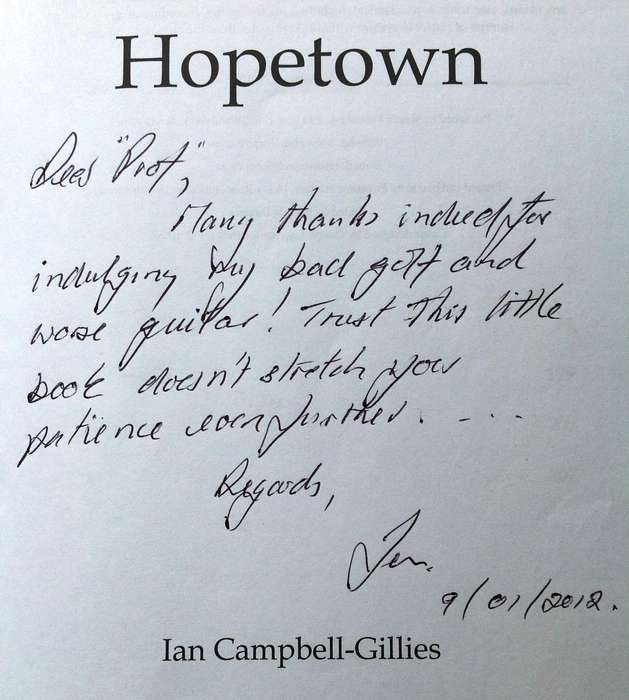 Hopetown
Dear "Prof",
Many thanks indeed for
indulging my bad golf and
worse guitar! Trust this little
book doesn't stretch your
patience even further. - - . .
Regards,
Ian.
9/01/2012.
Ian Campbell-Gillies